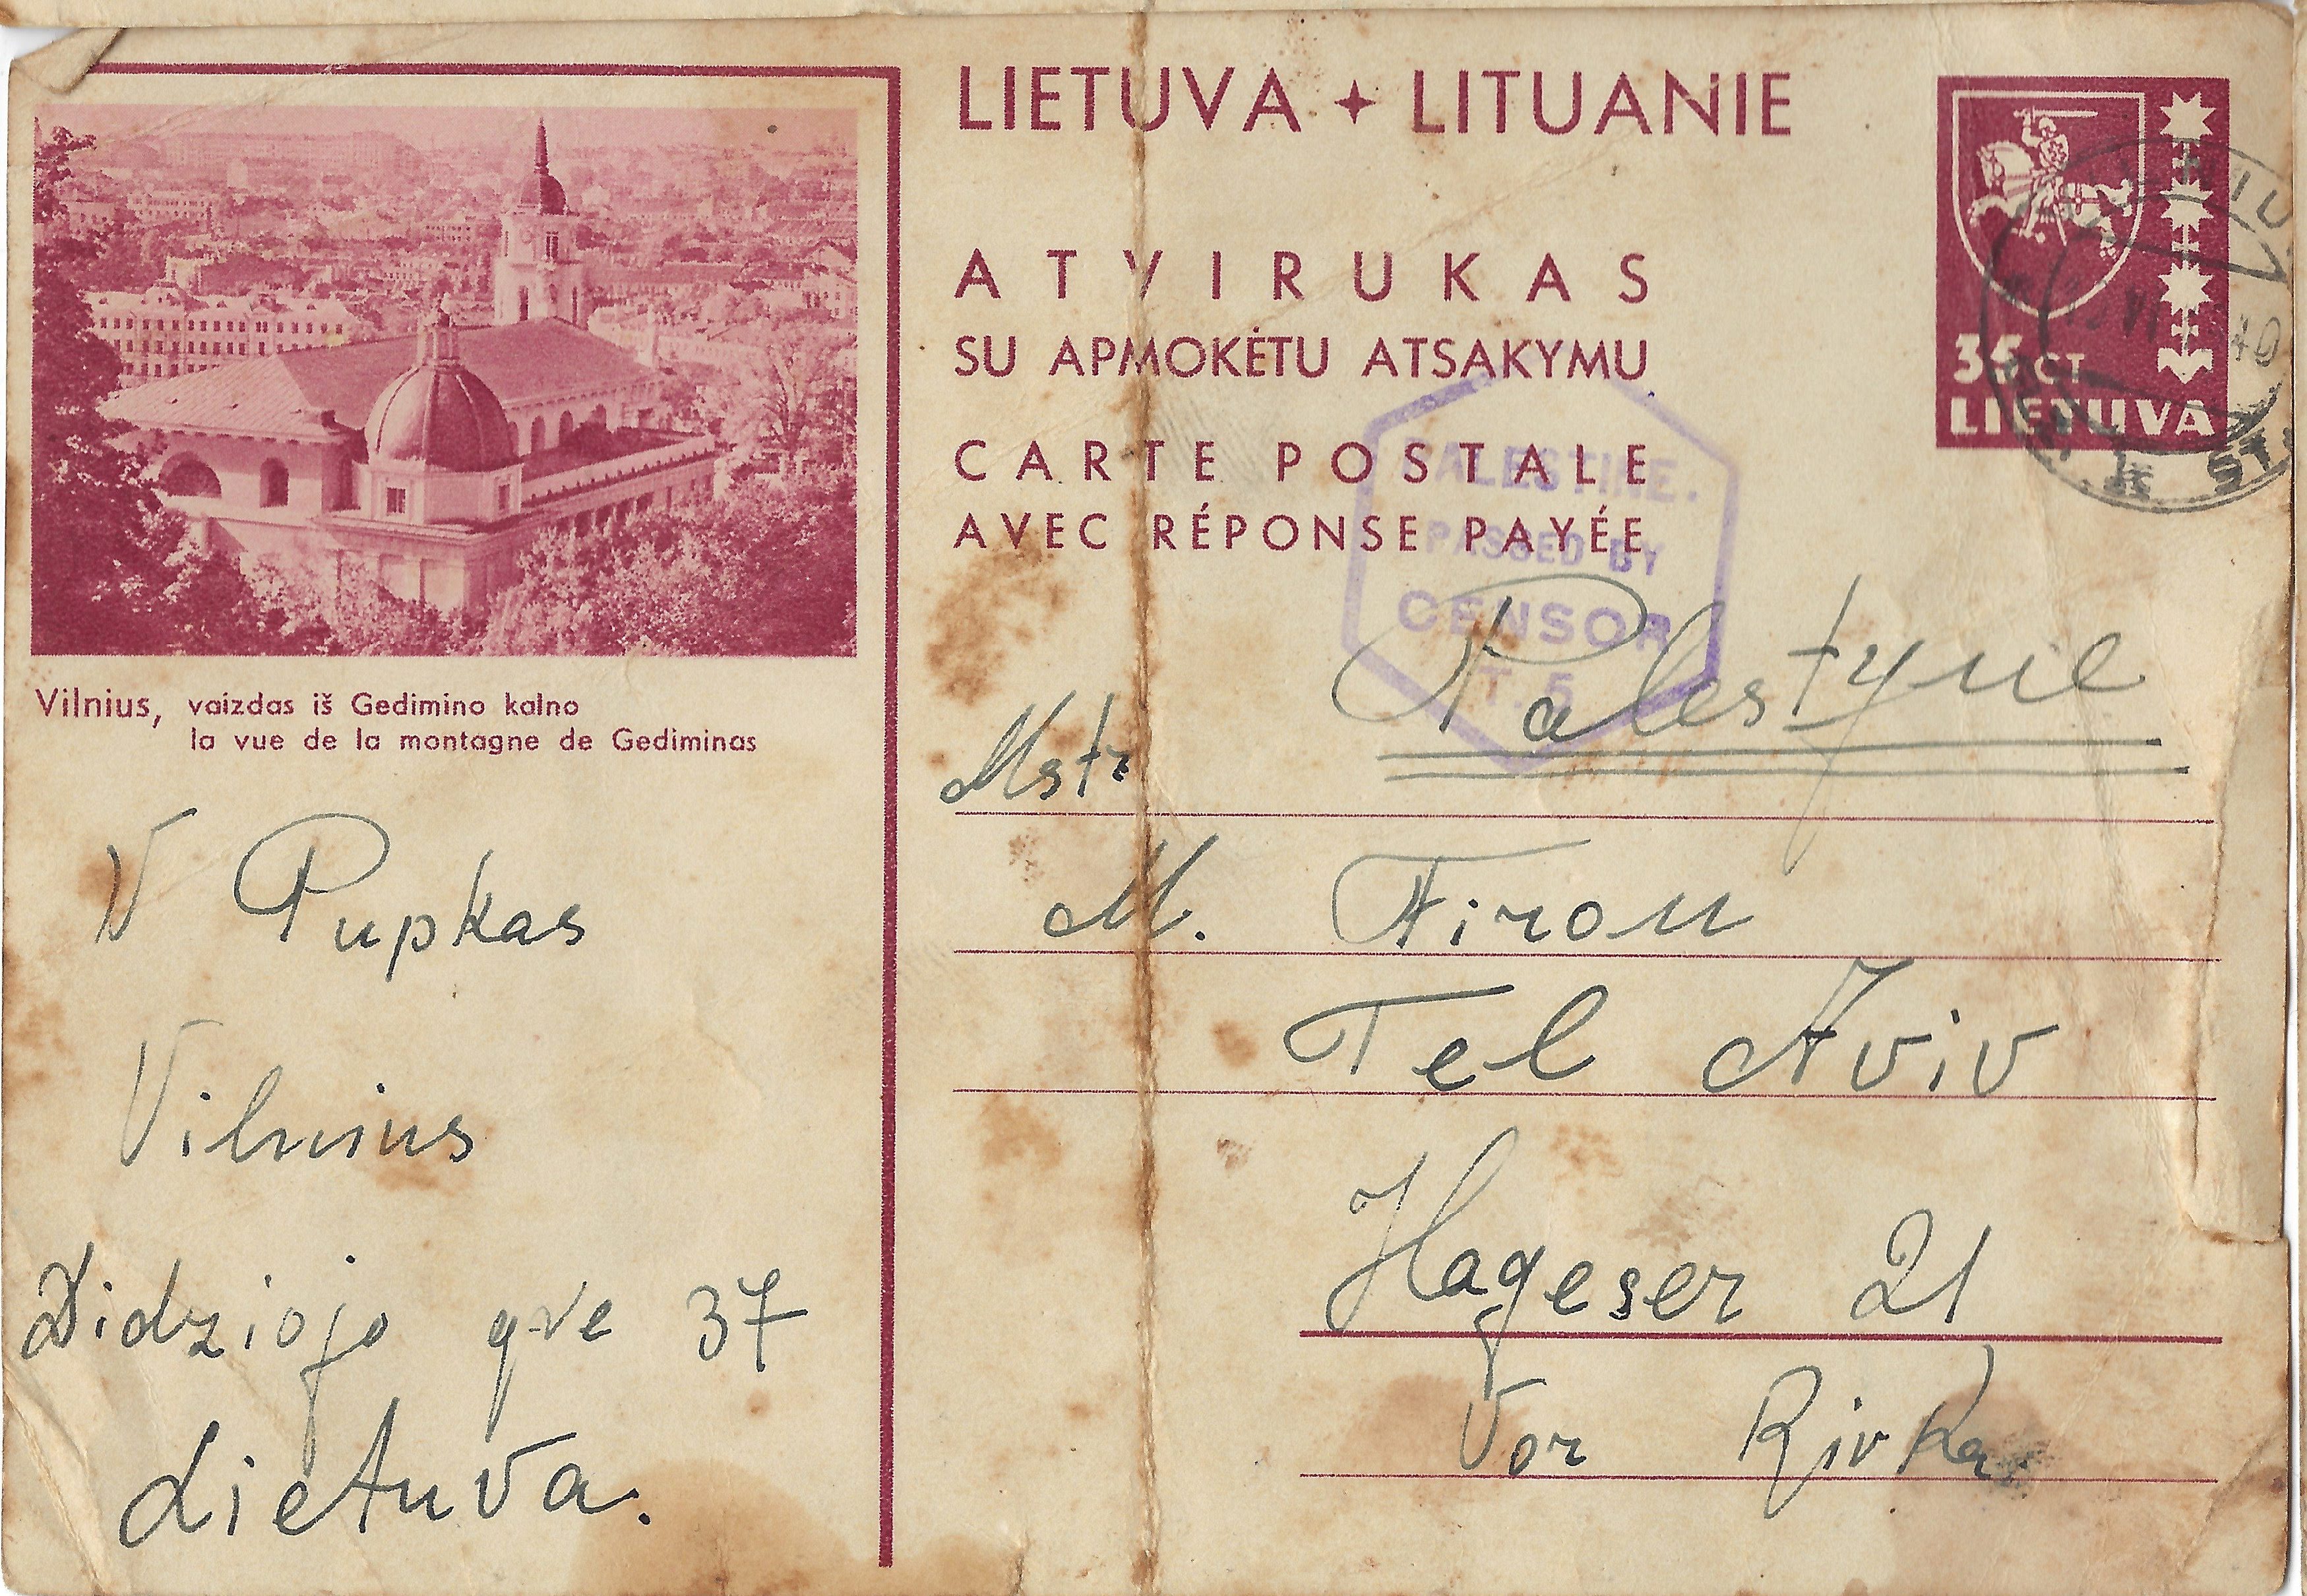 LIETUVA ✦ LITUANIE
ATVIRUKAS
SU APMOKĖTU ATSAKYMU
CARTE POSTALE
AVEC RÉPONSE PAYÉE
35 CT
LIETUVA
40
PALESTINE.
PASSED BY
CENSOR
T. 5
Vilnius, vaizdas iš Gedimino kalno
la vue de la montagne de Gediminas
V Pupkas
Vilnius
Didziojo gve 37
Lietuva.
Palestyne
Mstr
M. Firon
Tel Aviv
Hageser 21
Vor Rivka